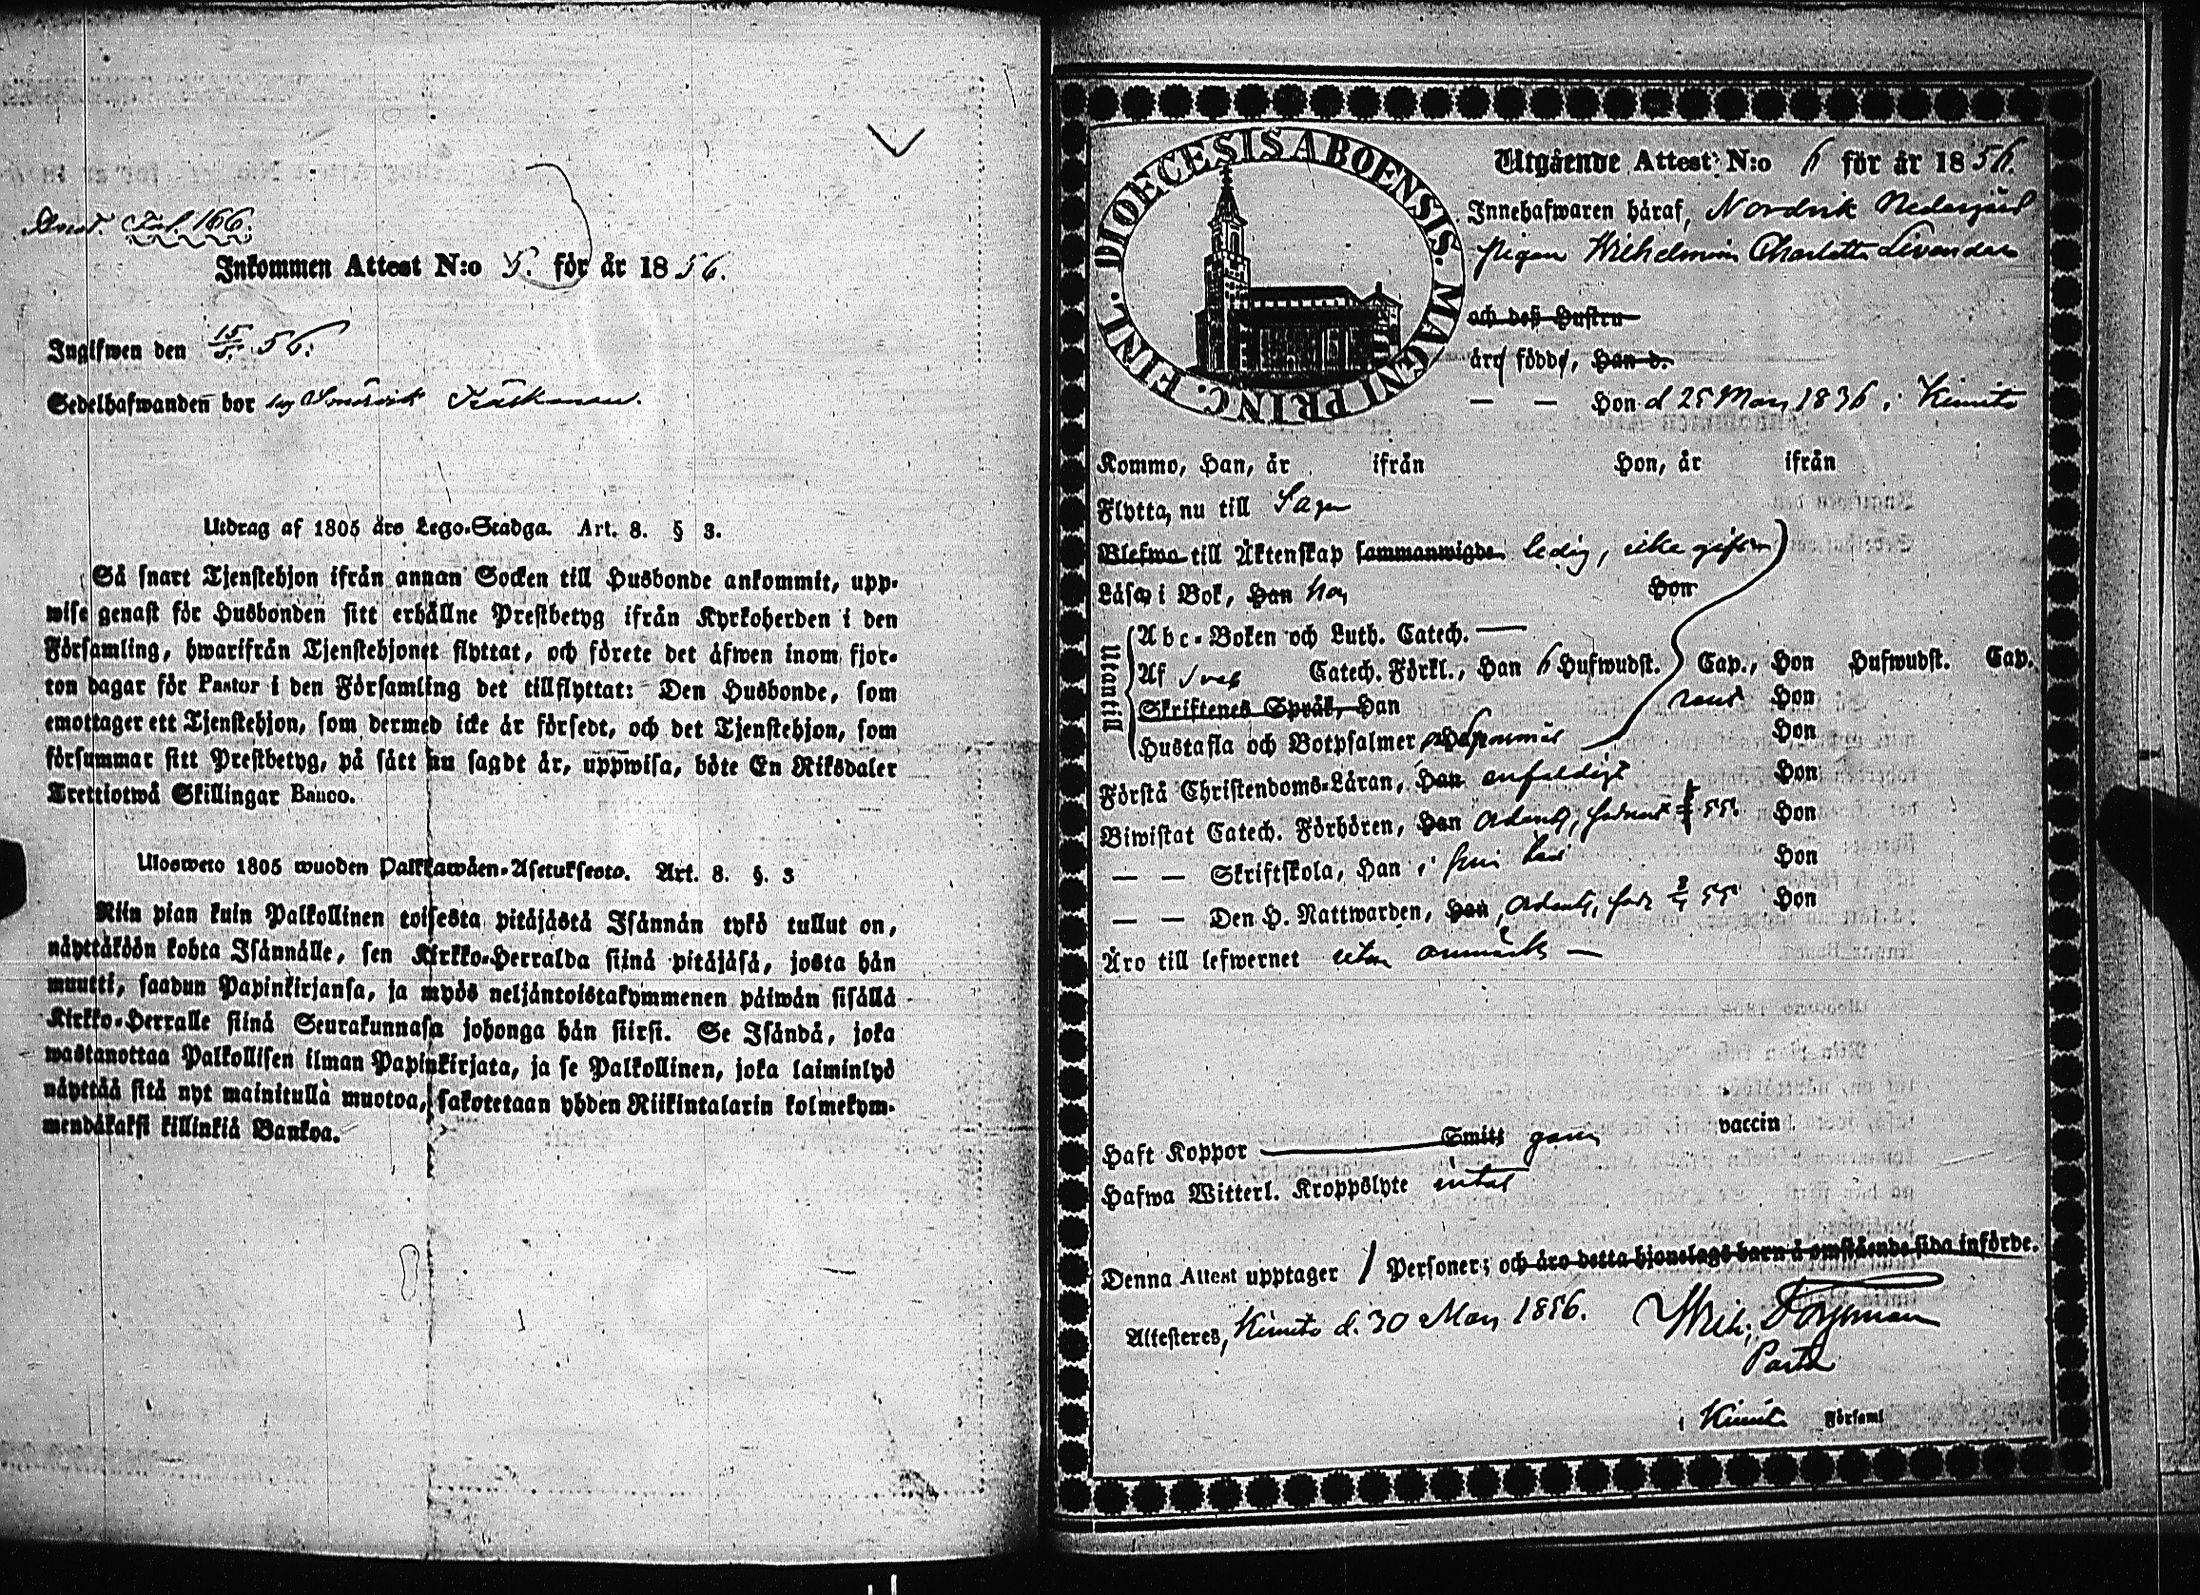 Fol. 166.
Inkommen Attest N:o 5. för år 1856.
Ingifwen den 15/5 56.
Sedelhafwanden bor
Utdrag af 1805 års Lego-Stadga. Art. 8. § 3.
Så snart Tjenstehjon ifrån annan Socken till Husbonde ankommit, upp-
wise genast för Husbonden sitt erhållne Prestbetyg ifrån Kyrkoherden i den
Församling, hwarifrån Tjenstehjonet flyttat, och förete det äfwen inom fjor-
ton dagar för Pastor i den Församling det tillflyttat: Den Husbonde, som
emottager ett Tjenstehjon, som dermed icke är försedt, och det Tjenstehjon, som
försummar sitt Prestbetyg, på sätt nu sagdt är, uppwisa, böte En Riksdaler
Trettiotwå Skillingar Banco.
Ulosweto 1805 wuoden Palkkawäen-Asetuksesta. Art. 8. §. 3
Niin pian kuin Palkollinen toisesta pitäjästä Isännän tykö tullut on,
näyttäköön kohta Isännälle, sen Kirkko-Herralda siinä pitäjäsä, josta hän
muutti, saadun Papinkirjansa, ja myös neljäntoistakymmenen päiwän sisällä
Kirkko-Herralle siinä Seurakunnasa johonga hän siirsi. Se Isändä, joka
wastanottaa Palkollisen ilman Papinkirjata, ja se Palkollinen, joka laiminlyö
näyttää sitä nyt mainitullä muotoa, sakotetaan yhden Riikintalarin kolmekym-
mendäkaksi killinkiä Bankoa.
DIOECESIS ABOENSIS. MAGNI PRINC. FINL.
Utgående Attest N:o 6 för år 1856.
Innehafwaren häraf, Nordvik Nedergård
pigan Wilhelmina Charlotta Levander
och deß Hustru
äro födde, Han d.
— — Hon d 25 Mars 1836 i Kimito
Kommo, Han, år ifrån Hon, år ifrån
Flytta, nu till Sagu
Blefwo till Äktenskap sammanwigde ledig, icke
Läsa i Bok, Han Hon
Utantill
Abc-Boken och Luth. Catech. —
Af Catech. Förkl., Han 6 Hufwudst. Cap., Hon Hufwudst. Cap.
Skriftenes Språk, Han Hon
Hustafla och Botpsalmer Hon
Förstå Christendoms-Läran, Han enfaldigt Hon
Biwistat Catech. Förhören, Han 55. Hon
— — Skriftskola, Han i Hon
— — Den H. Nattwarden, Han 55 Hon
Äro till lefwernet utan anmärk —
Haft Koppor Smitt vaccin
Hafwa Witterl. Kroppslyte intet
Denna Attest upptager 1 Personer; och äro detta hjonelags barn å omstående sida införde.
Attesteres, Kimito d. 30 Mars 1856.
Past
i Kimito Församl